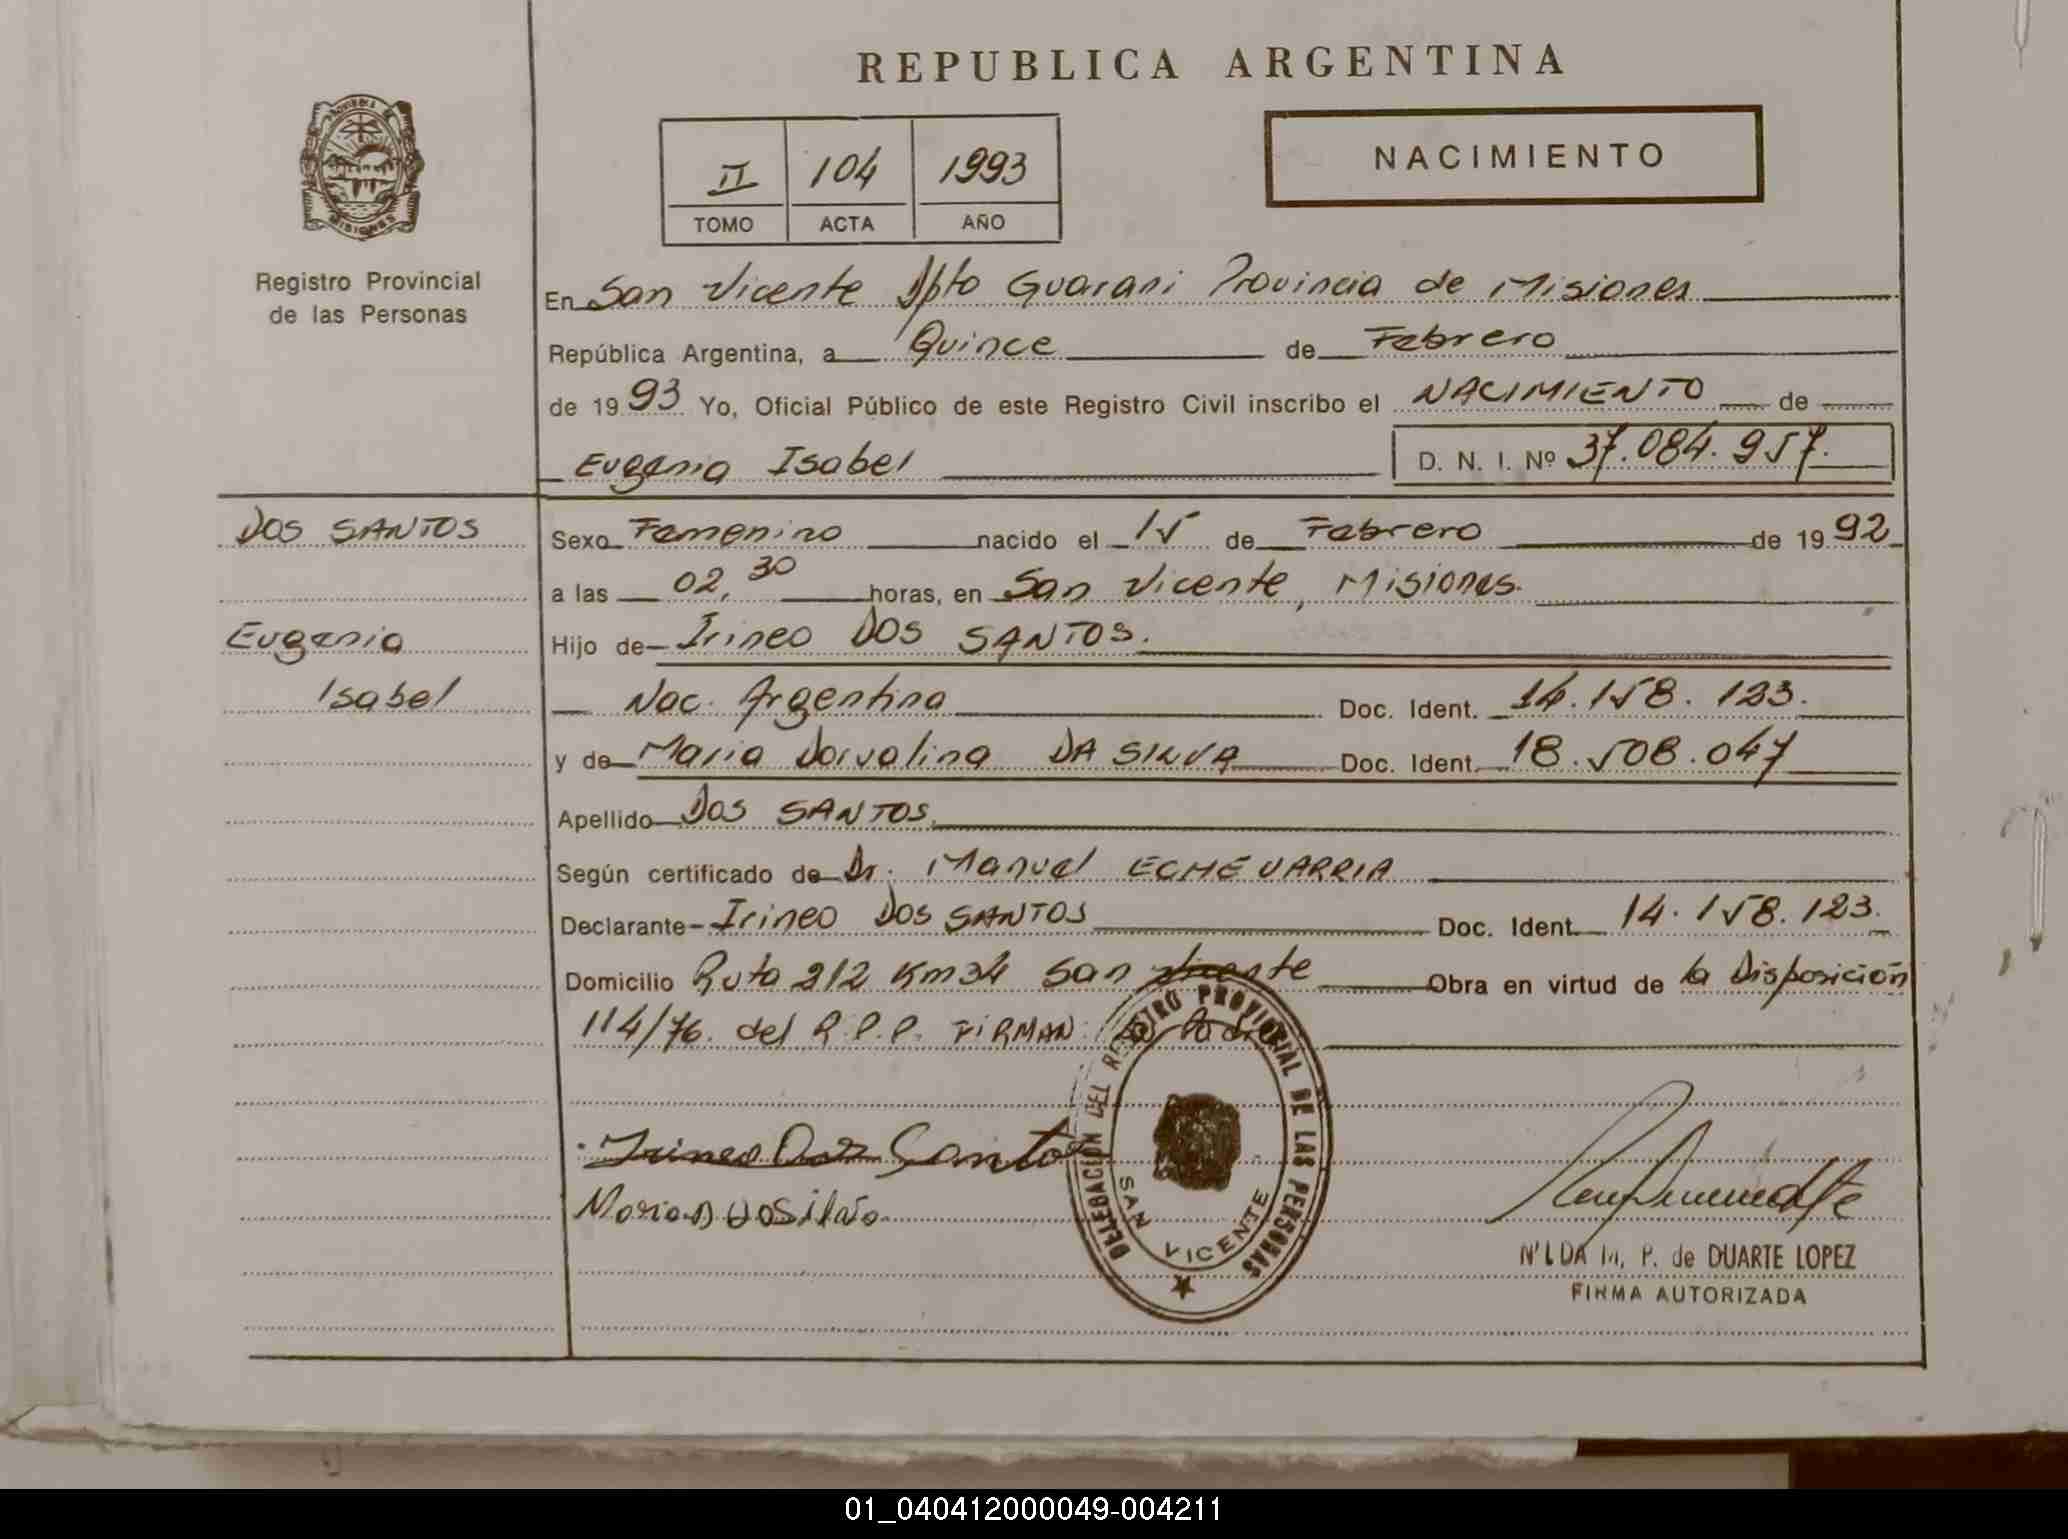 REPUBLICA ARGENTINA
II 104 1993
TOMO ACTA AÑO
NACIMIENTO
PROVINCIA DE
MISIONES
Registro Provincial
de las Personas
En San Vicente Dpto Guarani Provincia de Misiones
República Argentina, a Quince de Febrero
de 1993 Yo, Oficial Público de este Registro Civil inscribo el NACIMIENTO de
Eugenia Isabel D. N. I. Nº 37.084.957.
DOS SANTOS
Eugenia
Isabel
Sexo Femenino nacido el 15 de Febrero de 1992
a las 02,30 horas, en San Vicente, Misiones.
Hijo de Irineo DOS SANTOS.
Nac. Argentina Doc. Ident. 14.158.123.
y de Maria Dorvalina DA SILVA Doc. Ident. 18.508.047
Apellido DOS SANTOS.
Según certificado de Dr. Manuel ECHEVARRIA
Declarante Irineo DOS SANTOS Doc. Ident. 14.158.123.
Domicilio Ruta 212 Km34 San Vicente Obra en virtud de la Disposición
114/76. del R.P.P. FIRMAN:
Irineo Dos Santos
DELEGACIÓN DEL REGISTRO PROVINCIAL DE LAS PERSONAS
SAN VICENTE
NILDA M. P. de DUARTE LOPEZ
FIRMA AUTORIZADA
01_040412000049-004211